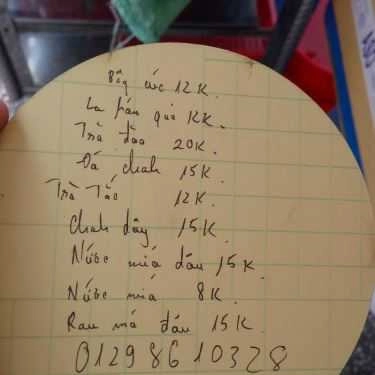 Bông cúc 12K.
La hán quả 12K.
Trà đào 20K.
Đá chanh 15K
Trà Táo 12K.
Chanh dây 15K.
Nước mía dâu 15K.
Nước mía 8K.
Rau má dâu 15K.
01298610328